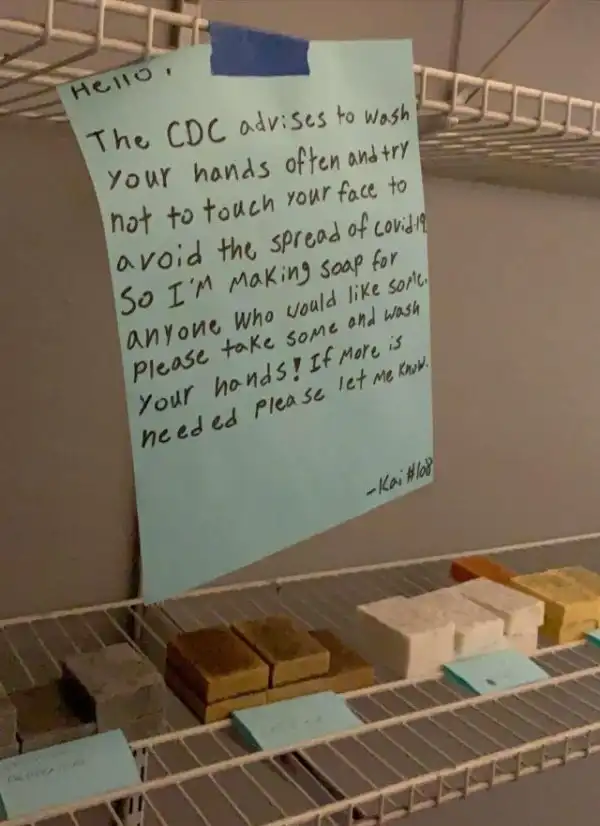 Hello,
The CDC advises to wash
your hands often and try
not to touch your face to
avoid the spread of covid-19
So I'm making soap for
anyone who would like some.
Please take some and wash
your hands! If more is
needed please let me know.
-Kai #108